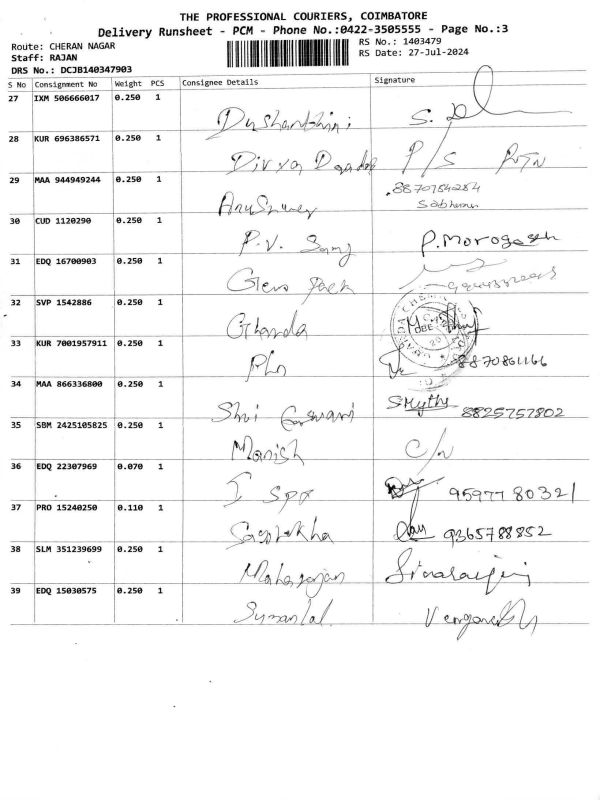 THE PROFESSIONAL COURIERS, COIMBATORE
Delivery Runsheet - PCM - Phone No.:0422-3505555 - Page No.:3
Route: CHERAN NAGAR
RS No.: 1403479
Staff: RAJAN
RS Date: 27-Jul-2024
DRS No.: DCJB140347903
S No Consignment No Weight PCS Consignee Details Signature
27 IXM 506666017 0.250 1 Dushanthini S.
28 KUR 696386571 0.250 1 Divya P/S RTN
29 MAA 944949244 0.250 1 8870784284
30 CUD 1120290 0.250 1 P.V. Samy P.Morogesh
31 EDQ 16700903 0.250 1 Pack
32 SVP 1542886 0.250 1 Gharda
33 KUR 7001957911 0.250 1 Pho 8870861166
34 MAA 866336800 0.250 1 Shri Eswari Smythi 8825757802
35 SBM 2425105825 0.250 1 Manish C/N
36 EDQ 22307969 0.070 1 I spa 9597780321
37 PRO 15240250 0.110 1 9365788852
38 SLM 351239699 0.250 1 Maharajan
39 EDQ 15030575 0.250 1 Sumanlal